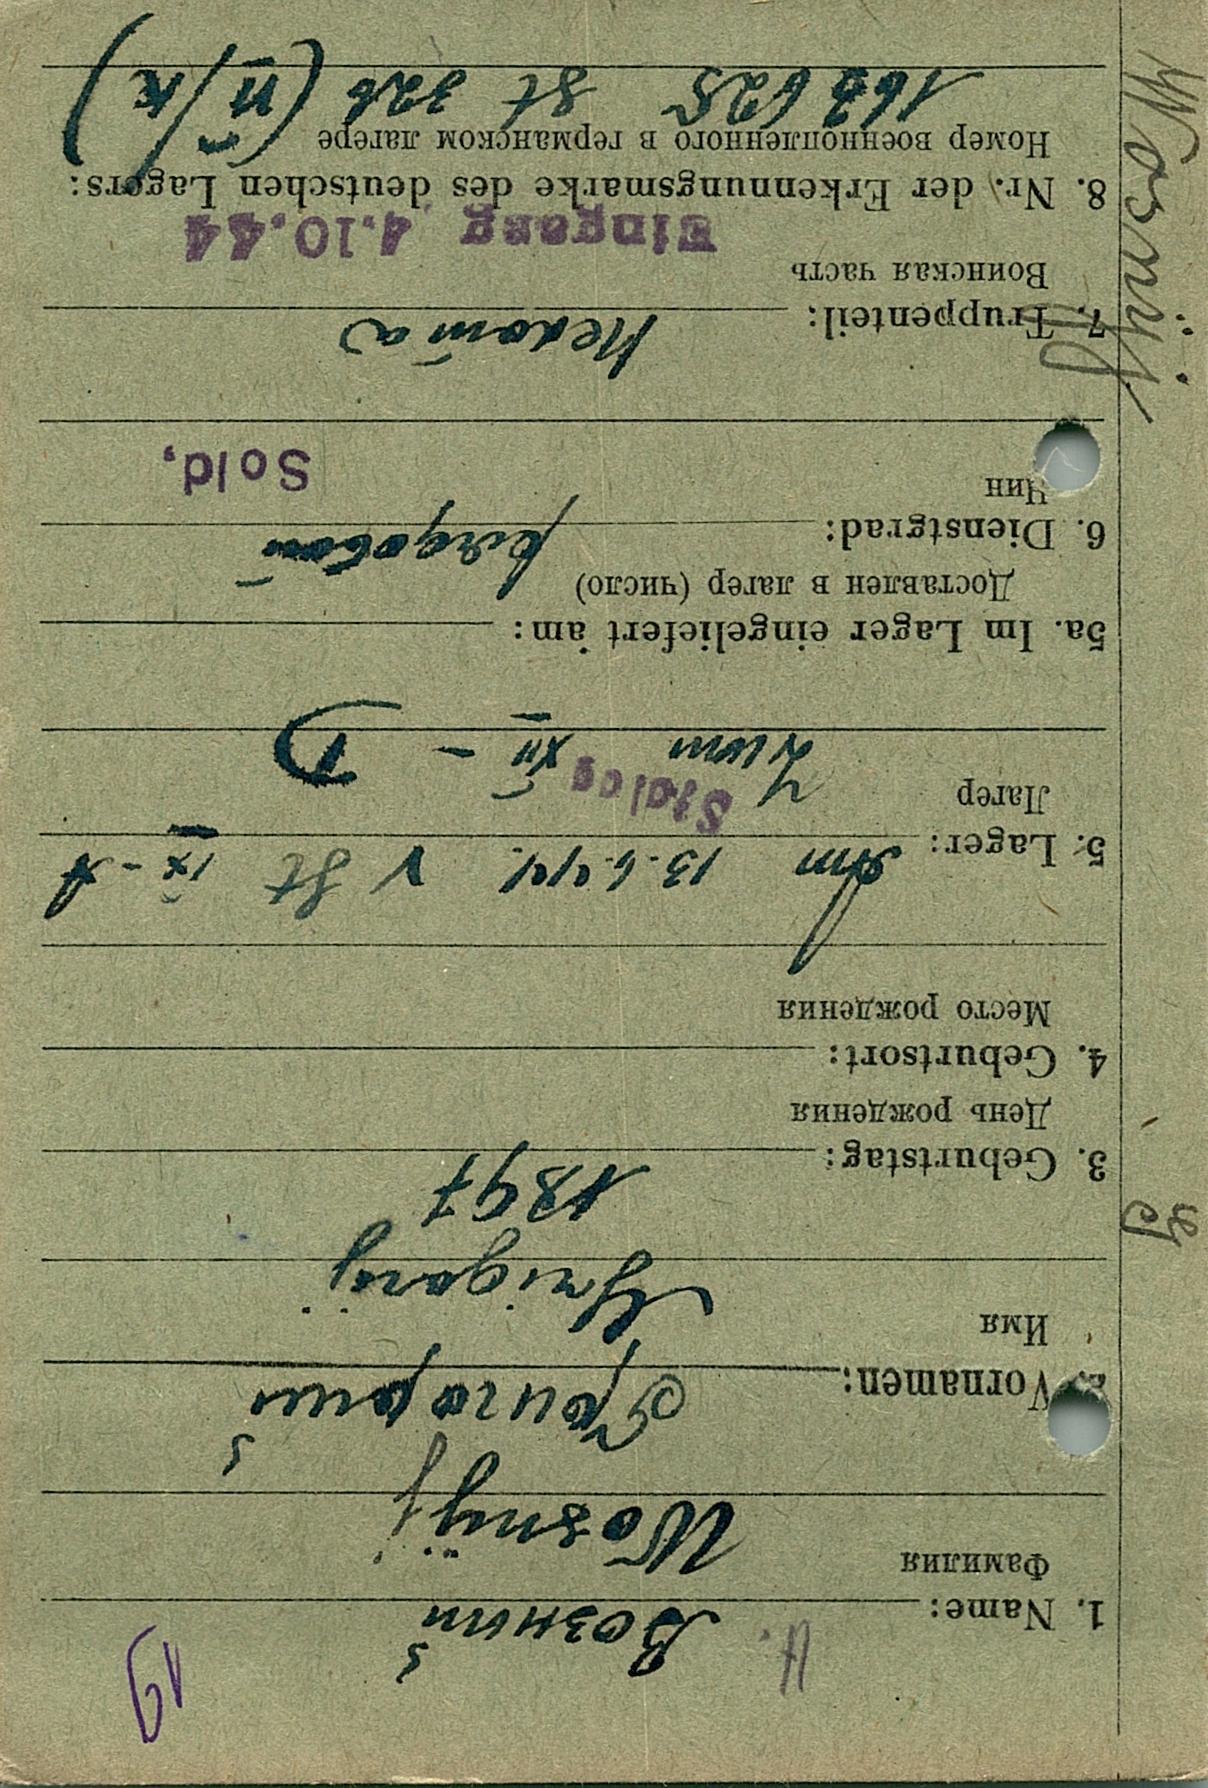 19
H.
1. Name: Возный
Фамилия
Wosnÿj
2. Vornamen: Григорий
Имя
Grigorij
3. Geburtstag: 1897
День рождения
4. Geburtsort:
Место рождения
Am 13.6.44. v St IX-A
5. Lager:
Лагер
Stalag
zum XII - D
5a. Im Lager eingeliefert am:
Доставлен в лагер (число)
6. Dienstgrad: рядовой
Чин
Sold,
7. Truppenteil: Пехота
Воинская часть
Eingang 4.10.44
8. Nr. der Erkennungsmarke des deutschen Lagers:
Номер военнопленного в германском лагере
162625 St 326 (VI/K)
Wosnÿj